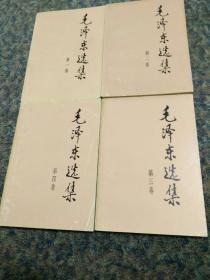 毛泽东选集
第一卷
毛泽东选集
第二卷
毛泽东选集
第四卷
毛泽东选集
第三卷